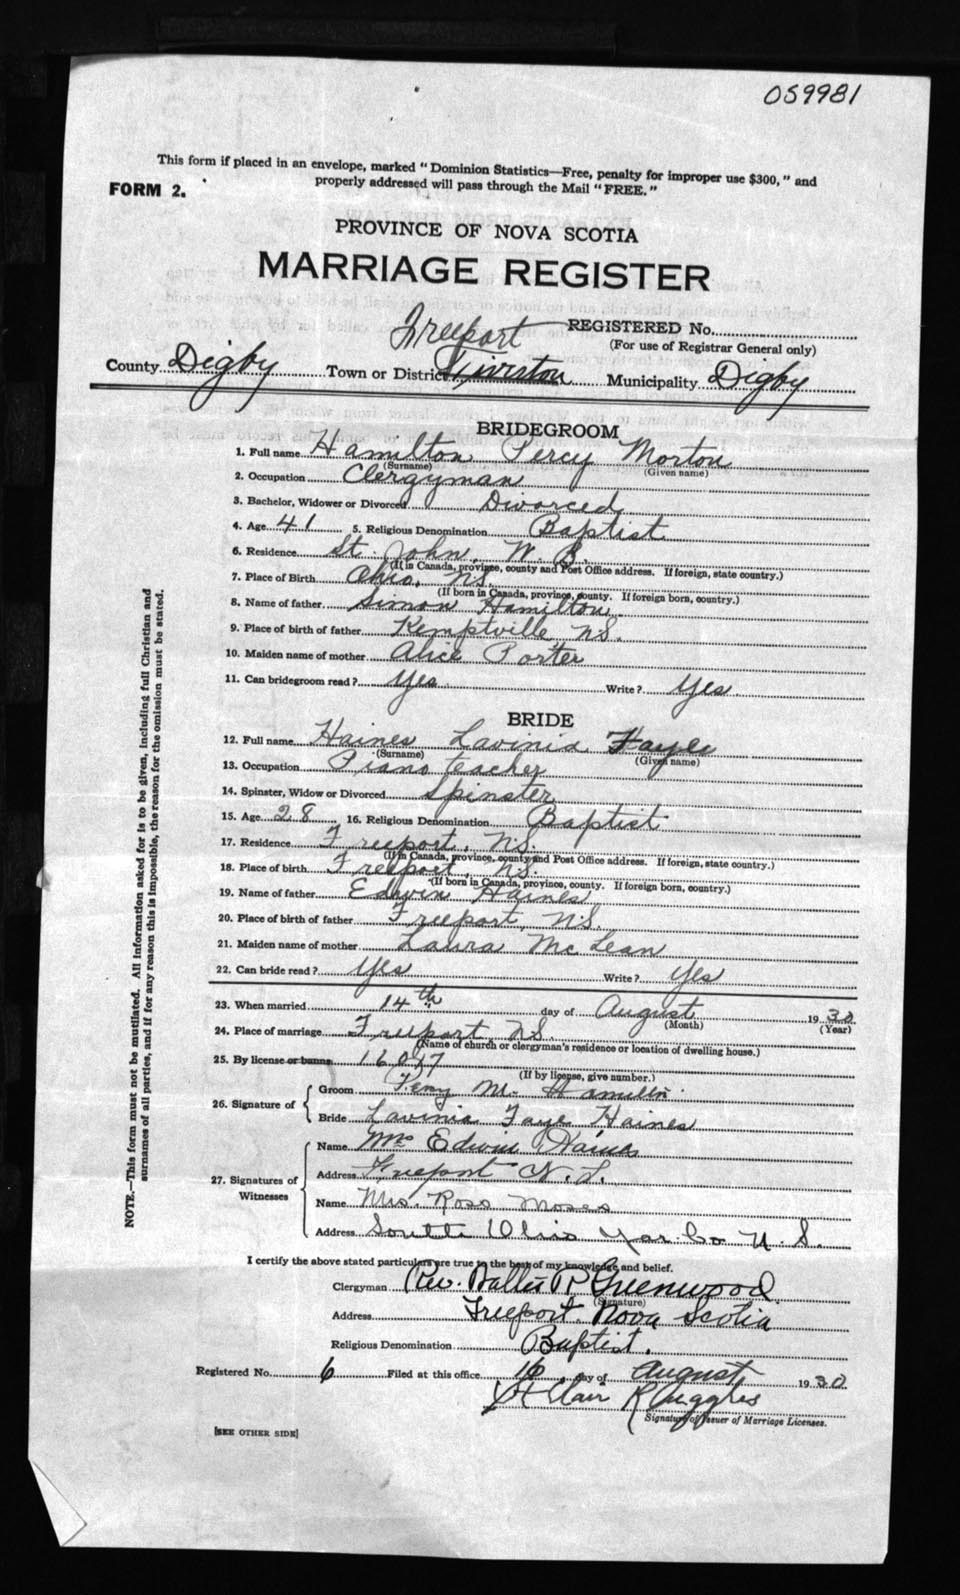 059981
This form if placed in an envelope, marked "Dominion Statistics—Free, penalty for improper use $300," and
FORM 2. properly addressed will pass through the Mail "FREE."
PROVINCE OF NOVA SCOTIA
MARRIAGE REGISTER
Freeport REGISTERED No.
(For use of Registrar General only)
County Digby Town or District Tiverton Municipality Digby
BRIDEGROOM
1. Full name Hamilton Percy Morton
(Surname) (Given name)
2. Occupation Clergyman
3. Bachelor, Widower or Divorced Divorced
4. Age 41 5. Religious Denomination Baptist
6. Residence St. John, N.B.
(If in Canada, province, county and Post Office address. If foreign, state country.)
7. Place of Birth Ohio, N.S.
(If born in Canada, province, county. If foreign born, country.)
8. Name of father Simon Hamilton
9. Place of birth of father Kemptville, N.S.
10. Maiden name of mother Alice Porter
11. Can bridegroom read? Yes Write? Yes
BRIDE
12. Full name Haines Lavinia Faye
(Surname) (Given name)
13. Occupation Piano teacher
14. Spinster, Widow or Divorced Spinster
15. Age 28 16. Religious Denomination Baptist
17. Residence Freeport, N.S.
(If in Canada, province, county and Post Office address. If foreign, state country.)
18. Place of birth Freeport, N.S.
(If born in Canada, province, county. If foreign born, country.)
19. Name of father Edwin Haines
20. Place of birth of father Freeport, N.S.
21. Maiden name of mother Laura McLean
22. Can bride read? Yes Write? Yes
23. When married 14th day of August 1930
(Month) (Year)
24. Place of marriage Freeport N.S.
(Name of church or clergyman's residence or location of dwelling house.)
25. By license or banns
(If by license, give number.)
26. Signature of
Groom Percy M. Hamilton
Bride Lavinia Faye Haines
27. Signatures of Witnesses
Name Mrs Edwin Haines
Address Freeport N.S.
Name Mrs. Ross Moses
Address South Ohio Yar. Co N.S.
I certify the above stated particulars are true to the best of my knowledge and belief.
Clergyman Rev. R Greenwood
(Signature)
Address Freeport. Nova Scotia
Religious Denomination Baptist.
Registered No. 6 Filed at this office 16 day of August 1930
St Clair Ruggles
Signature of Issuer of Marriage Licenses.
[SEE OTHER SIDE]
NOTE.—This form must not be mutilated. All information asked for is to be given, including full Christian and
surnames of all parties, and if for any reason this is impossible, the reason for the omission must be stated.